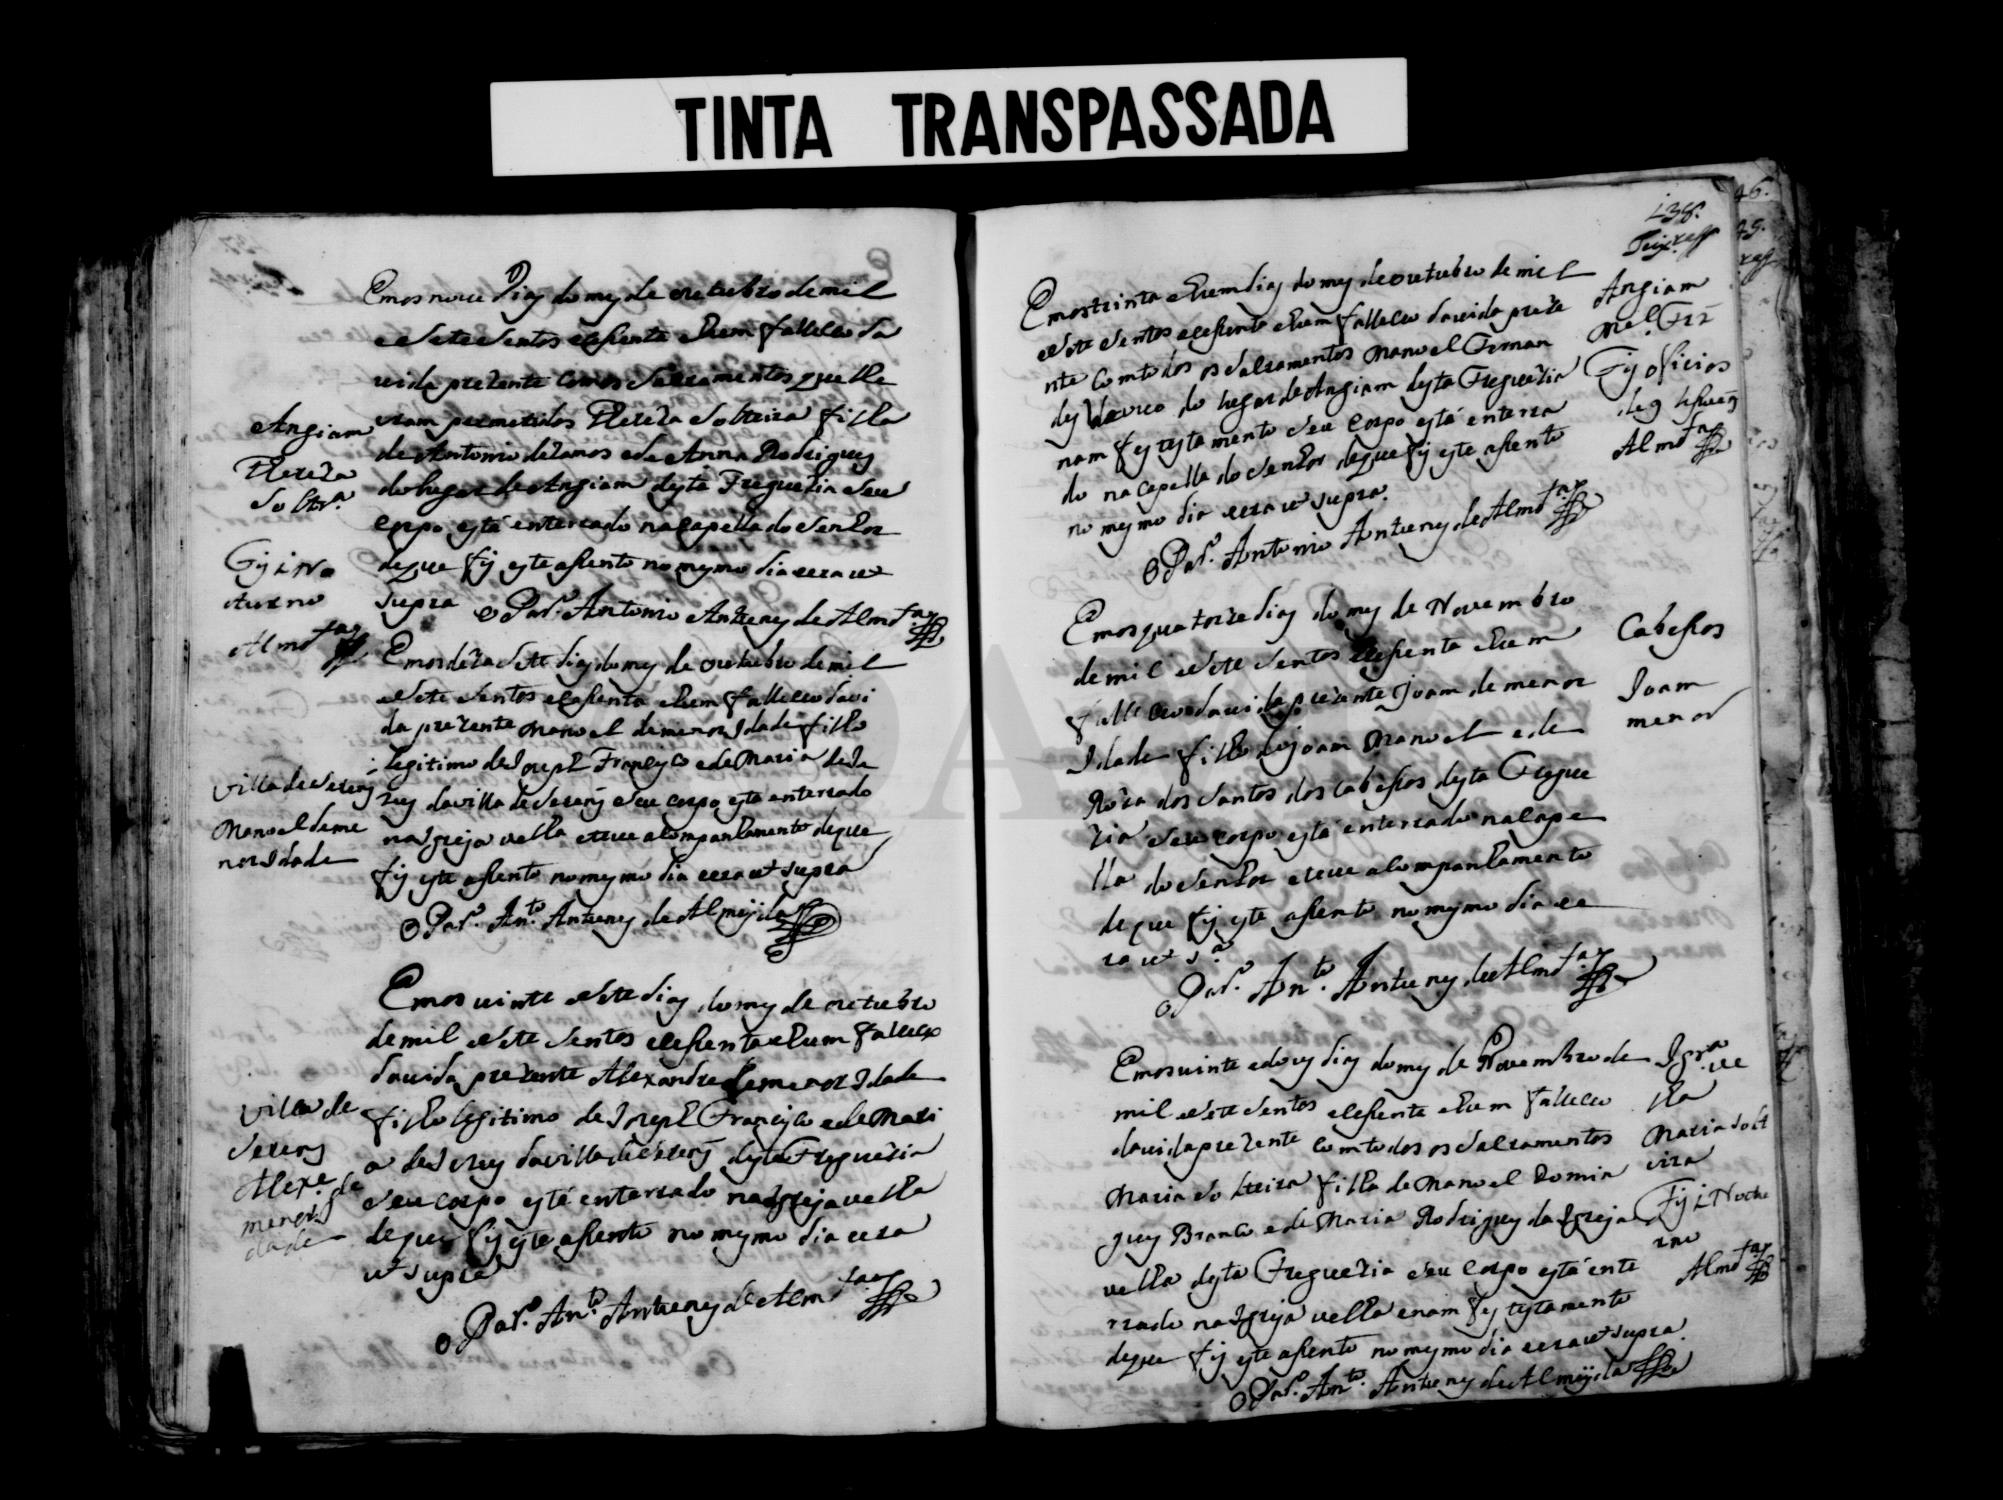 TINTA TRANSPASSADA
Em os nove Dias do mes de outubro de mil
e sete sentos e sesenta e hum falleseo da
vida prezente com os sacramentos que lhe
eram premetidos Thereza solteira filha
de Antonio de Ramos e de Anna Rodrigues
do lugar de Angiam desta Freguezia e seu
corpo está enterrado na capella do Senhor
de que fis este asento no mesmo dia era ut
supra o Par.º Antonio Antunes de Almd.ª
Angiam
Thereza
soltr.ª
Fis 1 No
turno
Almd.ª
Em os deza sete dias do mes de outubro de mil
e sete sentos e sesenta e hum falleseo da vi
da prezente Manoel de menor Idade filho
legitimo de Joseph Francisco e de Maria de Je
zus da villa de Seseris e seu corpo está enterrado
na Igreja velha e teve acompanhamento de que
fis este asento no mesmo dia era ut supra
o Par.º An.to Antunes de Almeijda
villa de Seseris
Manoel de me
nor Idade
Em os vinte e sete dias do mes de outubro
de mil e sete sentos e sesenta e hum falleseo
da vida prezente Alexandre de menor Idade
filho legitimo de Joseph Francisco e de Mari
a de Jezus da villa de Seseris desta Freguezia
e seu corpo está enterrado na Igreja velha
de que fis este asento no mesmo dia era
ut supra
o Par.º An.to Antunes de Almd.ª
villa de
Seseris
Alexe. de
menor I
dade
138.
Em os trinta e hum dias do mes de outubro de mil
e sete sentos e sesenta e hum falleseo da vida preze
nte com todos os sacramentos Manoel Fernan
des do lugar de Angiam desta Freguezia
nam fes testamento e seu corpo está enterra
do na capella do Senhor de que fis este asento
no mesmo dia era ut supra.
o Par.º Antonio Antunes de Almd.ª
Angiam
Mel. Frz
Fis oficios
de 9 lisois
Almd.ª
Em os quatorze dias do mes de Novembro
de mil e sete sentos e sesenta e hum
falleseo da vida prezente Joam de menor
Idade filho de Joam Manoel e de
Roza dos Santos dos Cabesos desta Fregue
zia e seu corpo está enterrado na cape
lla do Senhor e teve acompanhamento
de que fis este asento no mesmo dia e
ra ut s.ª
o Par.º An.to Antunes de Almd.ª
Cabesos
Joam
menor
Em os vinte e dous dias do mes de Novembro de
mil e sete sentos e sesenta e hum falleseo
da vida prezente com todos os sacramentos
Maria solteira filha de Manoel Domin
gues Branco e de Maria Rodrigues da Igreja
velha desta Freguezia e seu corpo está ente
rrado na Igreja velha e nam fes testamento
de que fis este asento no mesmo dia era ut supra.
o Par.º An.to Antunes de Almeijda
Igr.ª ve
lha
Maria solt
eira
Fis 1 Notu
rno
Almd.ª